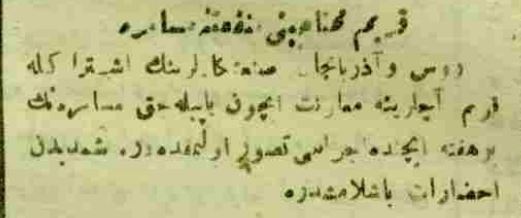 قريم محتاجينى منفعتنه مسامره
روس و آذربايجان صنعتكارلرينك اشتراكله
قريم آچلرينه معاونت ايچون ياپيله‌جق مسامره‌نك
بر هفته ايچنده اجراسى تصور اولنمقده‌در. شمديدن
احضارات باشلامشدر.